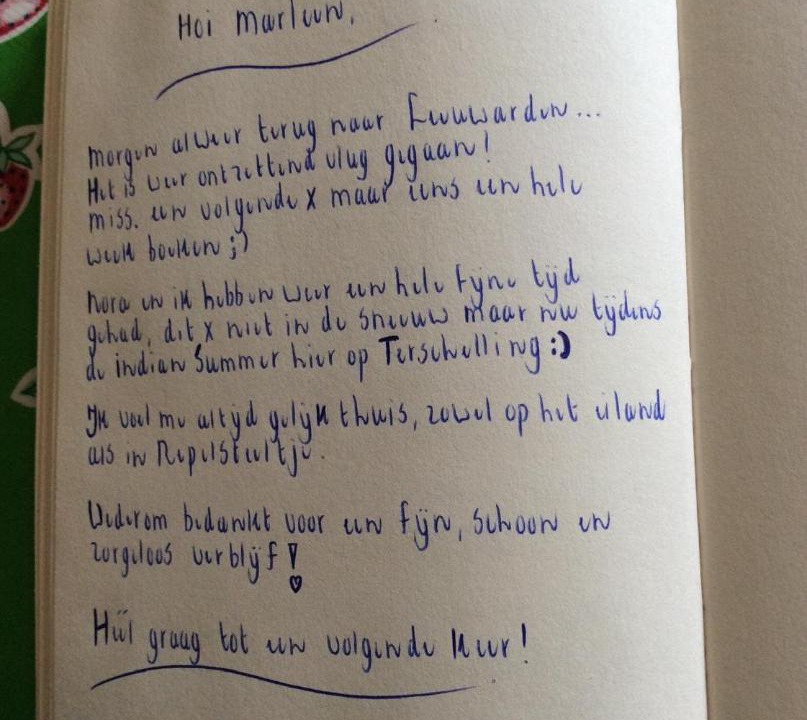 Hoi Marleen,
morgen alweer terug naar Leeuwarden...
Het is weer ontzettend vlug gegaan!
miss. een volgende x maar eens een hele
week boeken ;)
Nora en ik hebben weer een hele fijne tijd
gehad, dit x niet in de sneeuw maar nu tijdens
de indian Summer hier op Terschelling :)
Ik voel me altijd gelijk thuis, zowel op het eiland
als in Repelsteeltje.
Wederom bedankt voor een fijn, schoon en
zorgeloos verblijf!
Heel graag tot een volgende keer!